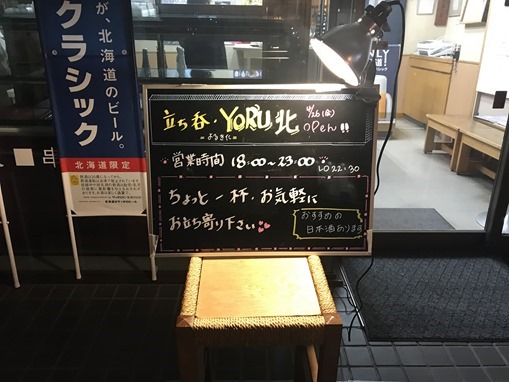 が、北海道のビール。
クラシック
北海道限定
串
立ち呑・YORU北
=よるきた=
4/26(金)
OPEN!!
営業時間 18:00〜23:00
LO 22:30
ちょっと一杯・お気軽に
お立ち寄り下さい
おすすめの
日本酒あります